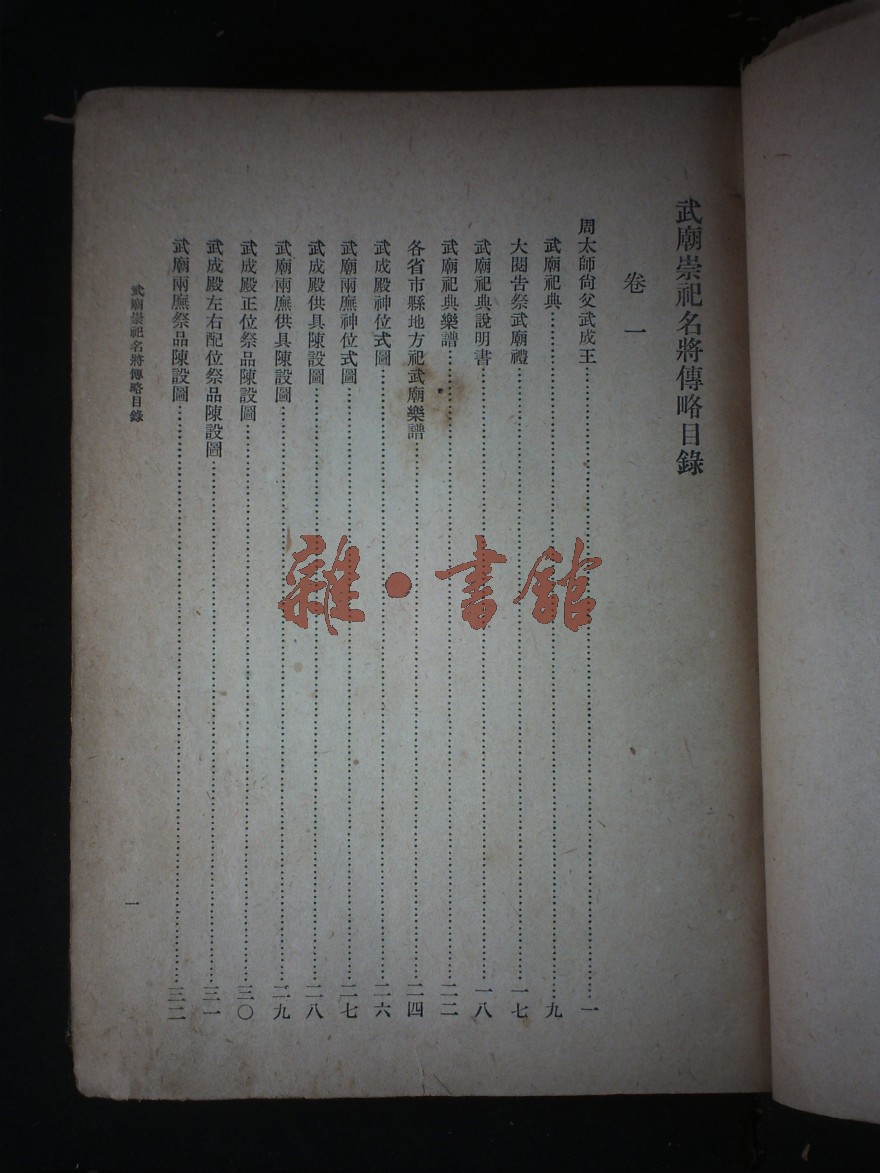 武廟崇祀名將傳略目錄
卷一
周太師尙父武成王……一
武廟祀典……九
大閱吿祭武廟禮……一七
武廟祀典說明書……一八
武廟祀典樂譜……二二
各省市縣地方祀武廟樂譜……二四
武成殿神位式圖……二六
武廟兩廡神位式圖……二七
武成殿供具陳設圖……二八
武廟兩廡供具陳設圖……二九
武成殿正位祭品陳設圖……三〇
武成殿左右配位祭品陳設圖……三一
武廟兩廡祭品陳設圖……三二
武廟崇祀名將傳略目錄
一
雜·書館